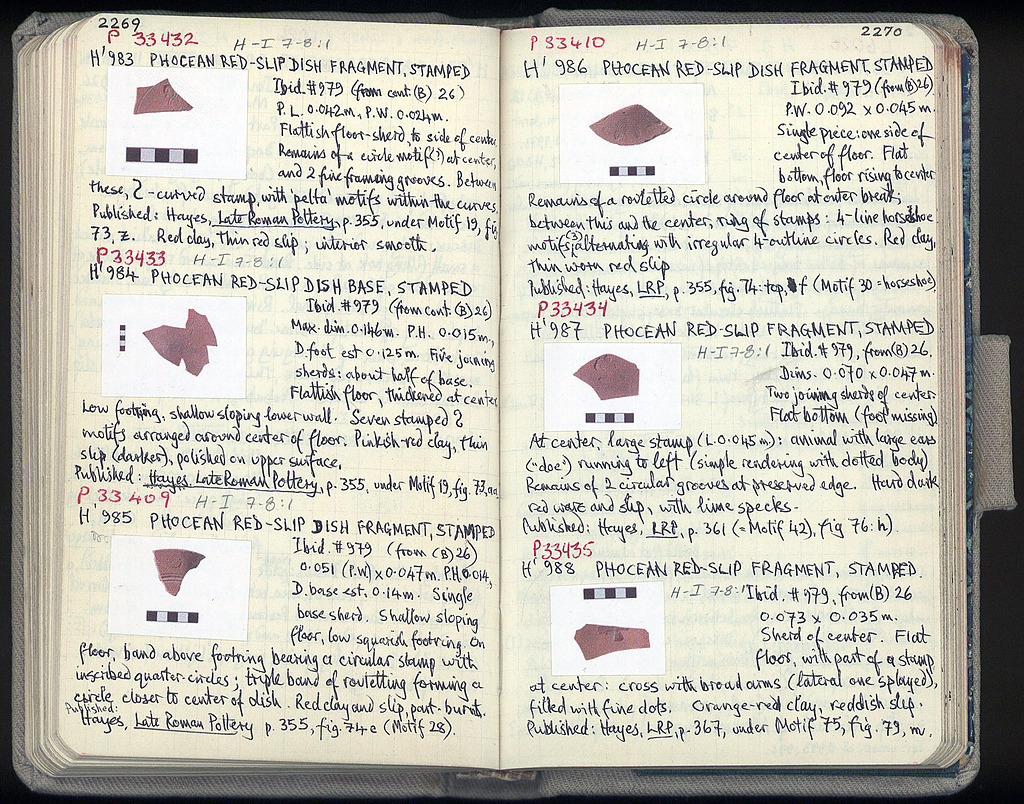 2269
P 33432 H-I 7-8:1
H'983 PHOCEAN RED-SLIP DISH FRAGMENT, STAMPED
Ibid. #979 (from cont (B) 26)
P.L. 0.042m, P.W. 0.024m.
Flattish floor-sherd, to side of center.
Remains of a circle motif(?) at center,
and 2 fine framing grooves. Between
these, S-curved stamp, with 'pelta' motifs within the curves.
Published: Hayes, Late Roman Pottery, p. 355, under Motif 19, fig
73, z. Red clay, thin red slip; interior smooth.
P33433 H-I 7-8:1
H'984 PHOCEAN RED-SLIP DISH BASE, STAMPED
Ibid #979 (from cont. (B) 26)
Max. dim. 0.146m. P.H. 0.015m.,
D. foot est 0.125m. Five joining
sherds: about half of base.
Flattish floor, thickened at center
Low footring. shallow sloping lower wall. Seven stamped S
motifs arranged around center of floor. Pinkish-red clay, thin
slip (darker), polished on upper surface.
Published: Hayes, Late Roman Pottery, p. 355, under Motif 19, fig. 73, aa
P 33409 H-I 7-8:1
H'985 PHOCEAN RED-SLIP DISH FRAGMENT, STAMPED
Ibid. #979 (from (B) 26)
0.051 (P.W) x 0.047m. P.H. 0.014,
D. base est. 0.14m. Single
base sherd. Shallow sloping
floor, low squarish footring. On
floor, band above footring bearing a circular stamp with
inscribed quarter-circles; triple band of rouletting forming a
circle closer to center of dish. Red clay and slip, part-burnt.
Published:
Hayes, Late Roman Pottery p. 355, fig. 74 e (Motif 28).
2270
P 33410 H-I 7-8:1
H'986 PHOCEAN RED-SLIP DISH FRAGMENT, STAMPED
Ibid. #979 (from (B) 26)
P.W. 0.092 x 0.045 m.
Single piece: one side of
center of floor. Flat
bottom, floor rising to center
Remains of a rouletted circle around floor at outer break;
between this and the center, ring of stamps: 4-line horseshoe
motifs (3) alternating with irregular 4-outline circles. Red clay,
thin worn red slip
Published: Hayes, LRP, p. 355, fig. 74 top, f (Motif 30 = horseshoe)
P33434
H'987 PHOCEAN RED-SLIP FRAGMENT, STAMPED
H-I 7-8:1 Ibid. #979, from (B) 26.
Dims. 0.070 x 0.047m.
Two joining sherds of center.
Flat bottom (foot missing)
At center, large stamp (L. 0.045m): animal with large ears
("doe") running to left (simple rendering with dotted body)
Remains of 2 circular grooves at preserved edge. Hard dark
red ware and slip, with lime specks.
Published: Hayes, LRP, p. 361 (= Motif 42), fig 76: h).
P33435
H'988 PHOCEAN RED-SLIP FRAGMENT, STAMPED.
H-I 7-8:1 Ibid. #979, from (B) 26
0.073 x 0.035m.
Sherd of center. Flat
floor, with part of a stamp
at center: cross with broad arms (lateral one splayed),
filled with fine dots. Orange-red clay, reddish slip.
Published: Hayes, LRP, p. 367, under Motif 75, fig. 79, m.